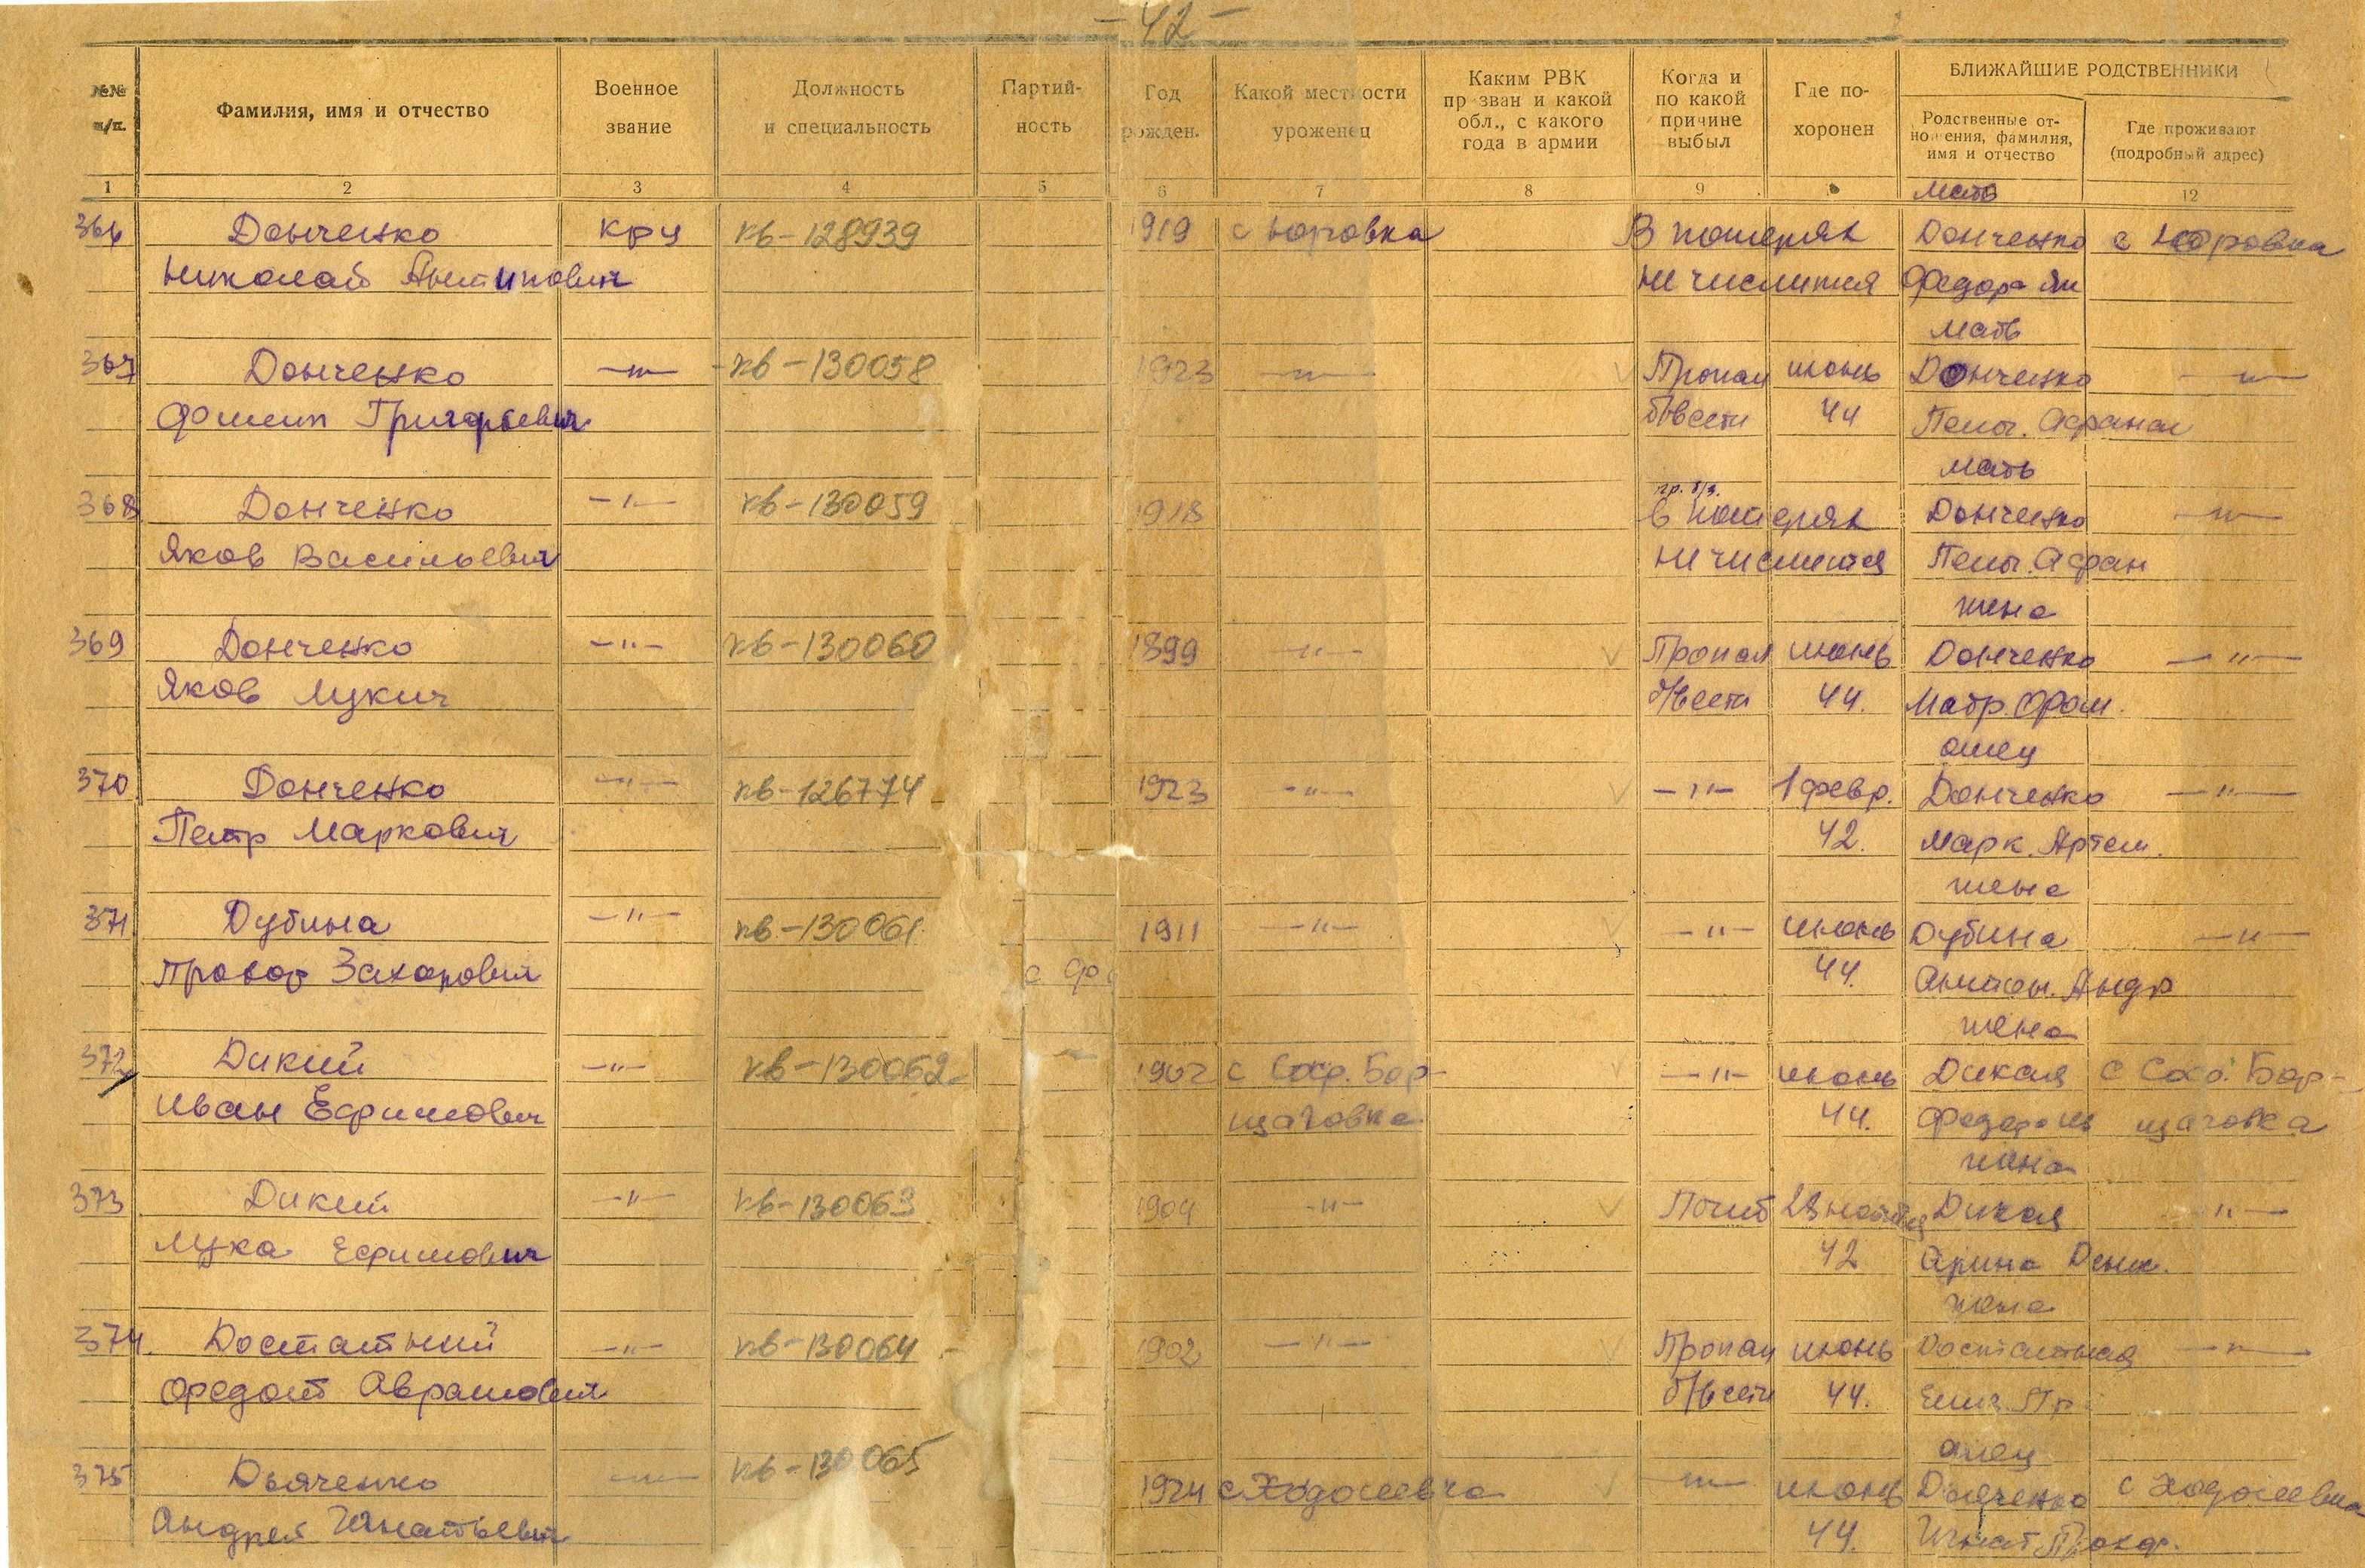 -42-
№№ п/п.
Фамилия, имя и отчество
Военное звание
Должность и специальность
Партий-
ность
Год рожден.
Какой местности уроженец
Каким РВК
пр зван и какой
обл., с какого
года в армии
Когда и
по какой
причине
выбыл
Где по-
хоронен
БЛИЖАЙШИЕ РОДСТВЕННИКИ
Родственные от-
но ения, фамилия,
имя и отчество
Где проживают
(подробный адрес)
1 2 3 4 5 6 7 8 9 12
мать
366 Донченко кр-ц кв-128939 1919 с Юровка В потерях Донченко с Юровка
Николай Антипович не числится Федора
мать
367 Донченко -"- кв-130058 1923 -"- Пропал июнь Донченко -"-
Филип Григорьевич б/вести 44 Пел. Афанас
мать
пр. б/в.
368 Донченко -"- кв-130059 1918 в потерях Донченко -"-
Яков Васильевич не числится Пел. Афан
жена
369 Донченко -"- кв-130060 1899 -"- Пропал июнь Донченко -"-
Яков Лукич б/вести 44. Матр. Фом.
отец
370 Донченко -"- кв-126774 1923 -"- -"- 1 февр. Донченко -"-
Петр Маркович 42. Марк. Артем.
жена
371 Дубина -"- кв-130061 1911 -"- -"- июнь Дубина -"-
Прокоф Захарович 44. Антон. Андр
с Фо
жена
372 Дикий -"- кв-130062 1902 с Соф. Бор- -"- июнь Дикая с Соф. Бор-
Иван Ефимович щаговка 44. Федора щаговка
жена
373 Дикий -"- кв-130063 1904 -"- Погиб 28 ноября Дикая -"-
Лука Ефимович 42 Арина Дени.
жена
374. Достатний -"- кв-130064 1902 -"- Пропал июнь Достатная -"-
Федот Аврамович б/вести 44. Пр.
отец
375 Дьяченко -"- кв-130065 1924 с Ходосеевка -"- июнь Дьяченко с Ходосеевка
Андрей Игнатьевич 44. Игнат Прокоф.